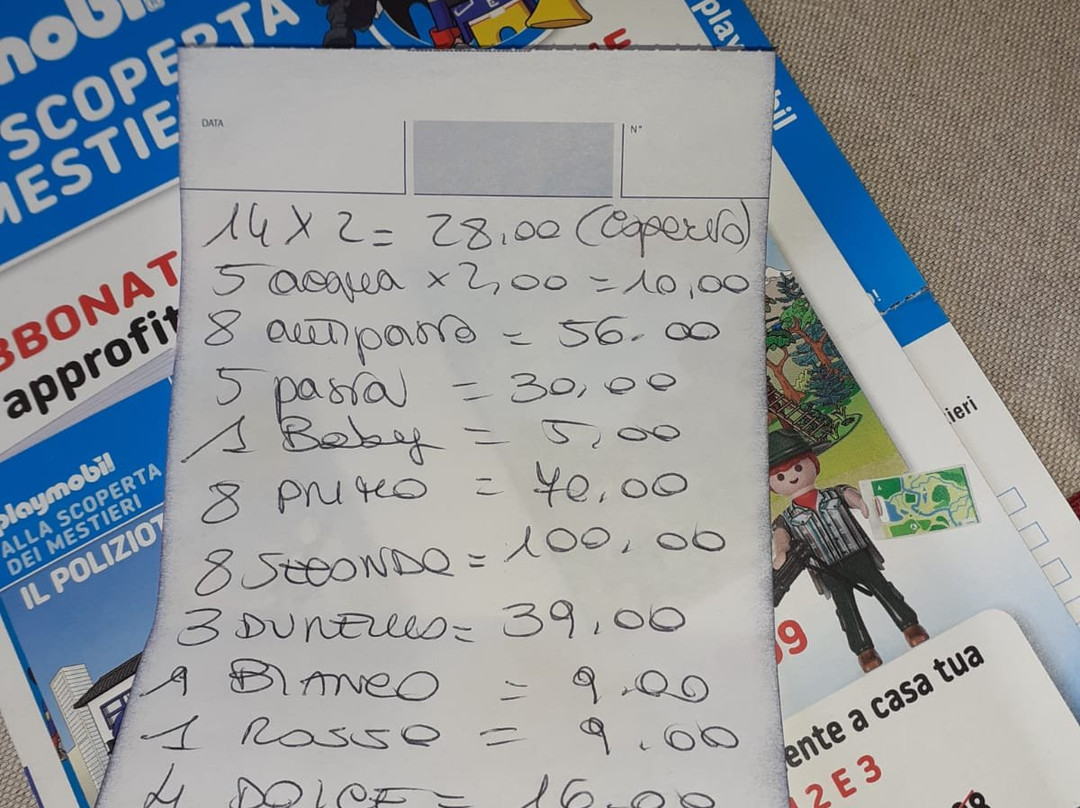 mobil
SCOPERTA
MESTIE
play
bil
DATA
N°
14 X 2 = 28,00 (Coperto)
5 acqua × 2,00 = 10,00
8 antipasto = 56.00
5 pasta = 30,00
1 Baby = 5,00
8 PRIMO = 70,00
8 SECONDO = 100,00
3 DURELLO = 39,00
1 BIANCO = 9.00
1 ROSSO = 9.00
4 DOLCE = 16.00
BBONAT
approfit
playmobil
ALLA SCOPERTA
DEI MESTIERI
IL POLIZIOT
ieri
99
ente a casa tua
1 2 E 3